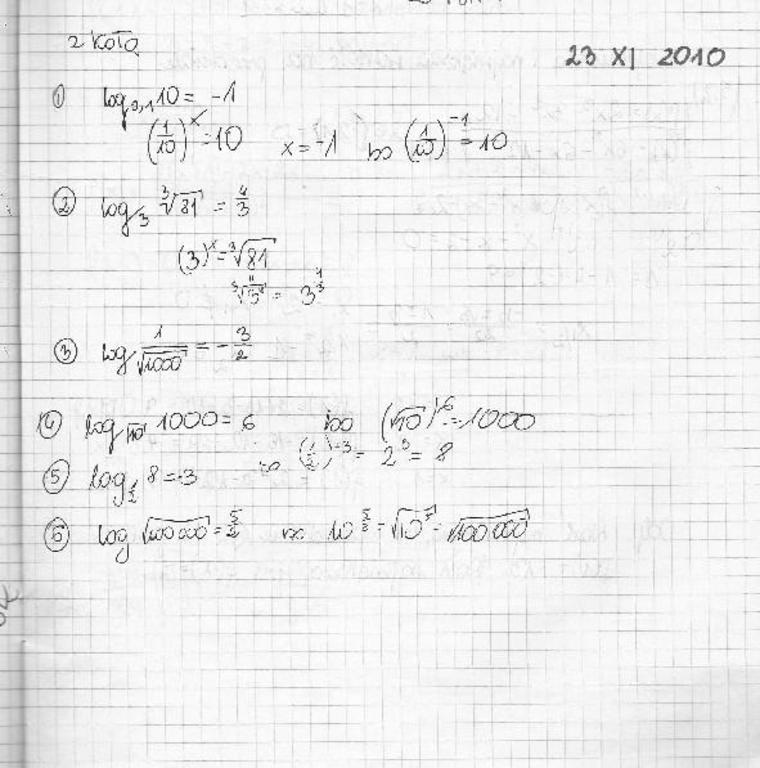 2 KOTA
23 XI 2010
① log₀,₁ 10 = -1
(1/10)ˣ = 10   x = -1   bo (1/10)⁻¹ = 10
② log₃ ∛81 = 4/3
(3)ˣ = ∛81
∛3⁴ = 3^(4/3)
③ log 1/√1000 = -3/2
④ log_√10 1000 = 6   bo (√10)⁶ = 1000
⑤ log_1/2 8 = -3   bo (1/2)⁻³ = 2³ = 8
⑥ log √100 000 = 5/2   bo 10^(5/2) = √10⁵ = √100 000